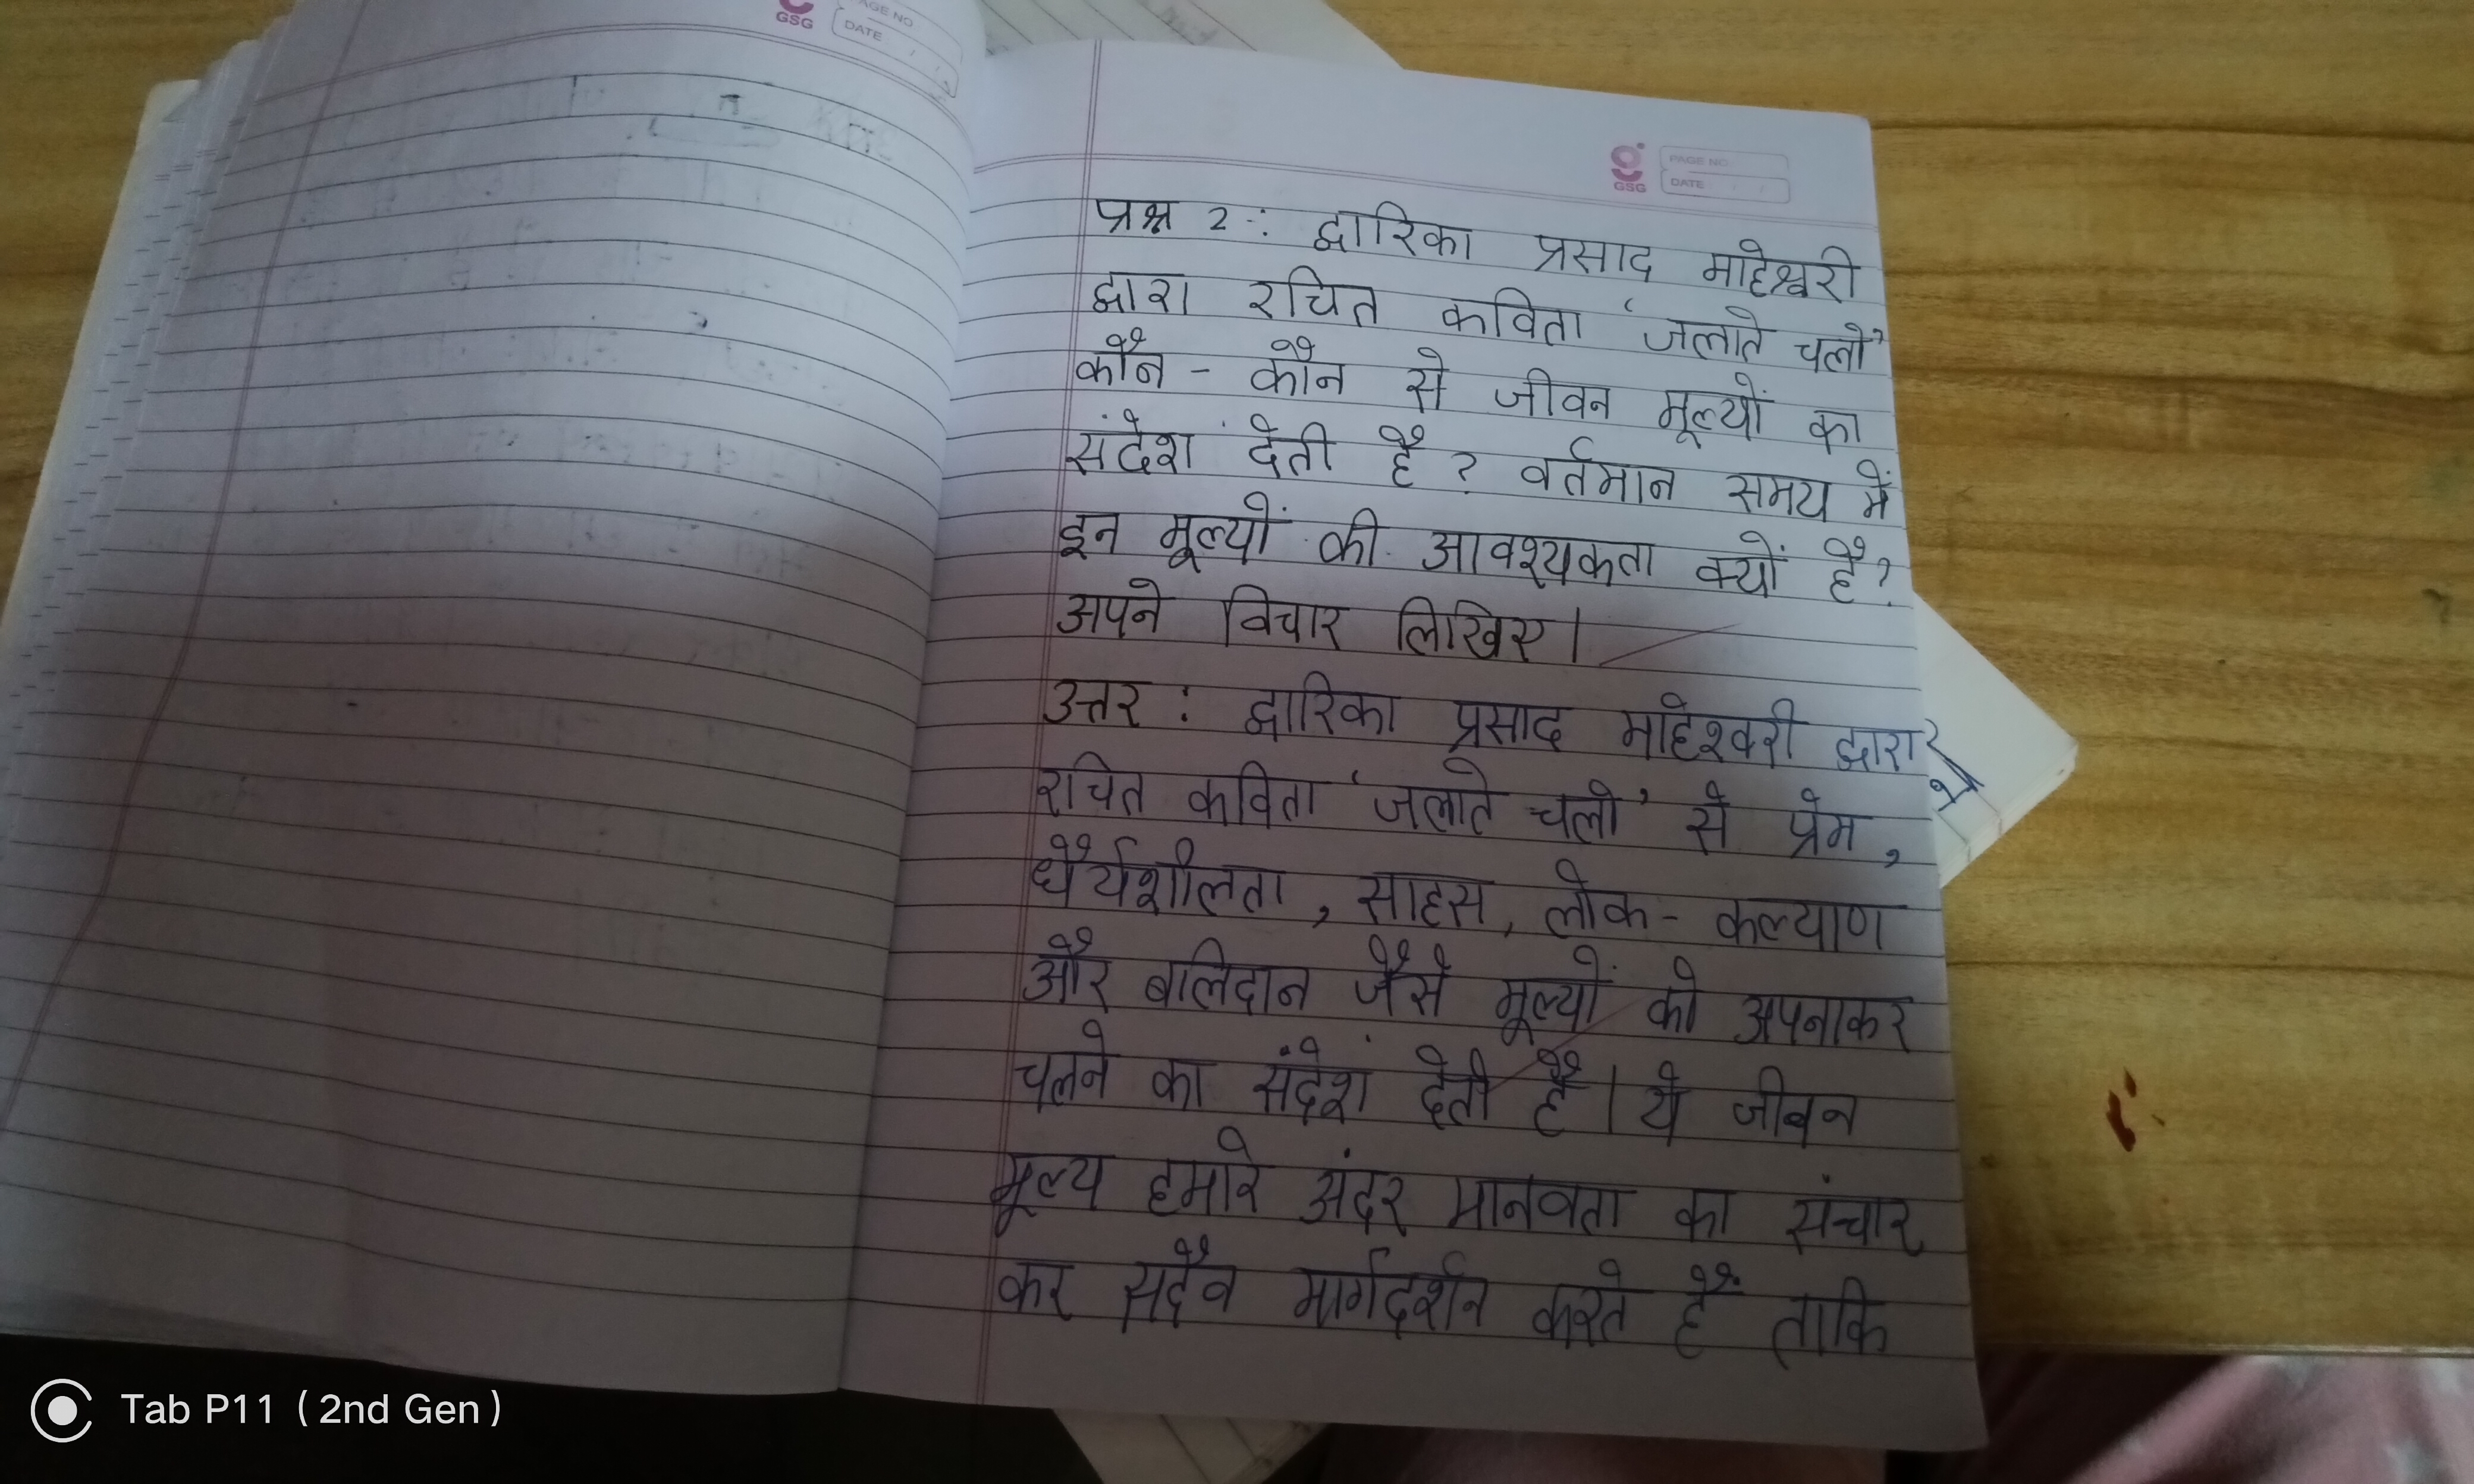 GSG
PAGE NO
DATE
GSG
PAGE NO
DATE
प्रश्न 2 : द्वारिका प्रसाद माहेश्वरी
द्वारा रचित कविता 'जलाते चलो'
कौन - कौन से जीवन मूल्यों का
संदेश देती है ? वर्तमान समय में
इन मूल्यों की आवश्यकता क्यों है ?
अपने विचार लिखिए।
उत्तर : द्वारिका प्रसाद माहेश्वरी द्वारा
रचित कविता 'जलाते चलो' से प्रेम,
धैर्यशीलता, साहस, लोक - कल्याण
और बलिदान जैसे मूल्यों को अपनाकर
चलने का संदेश देती है। ये जीवन
मूल्य हमारे अंदर मानवता का संचार
कर सदैव मार्गदर्शन करते हैं ताकि
Tab P11 (2nd Gen)